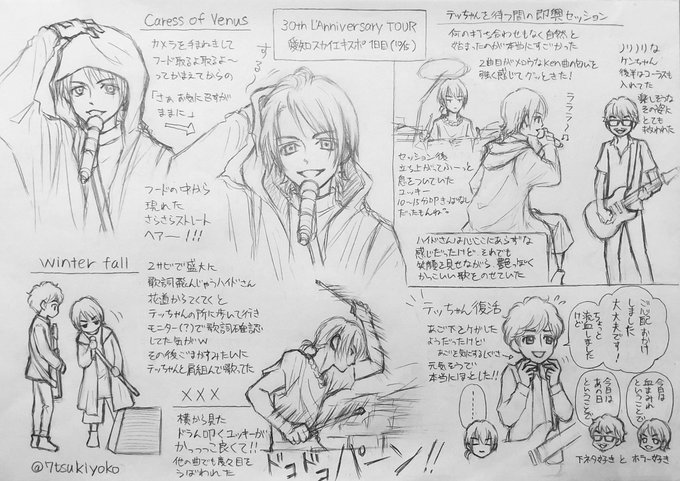 Caress of Venus
カメラを手まねきして
フード取るよ取るよ〜
ってかまえてからの
「さぁ お気に召すが
ままに」
する
30th L'Anniversary TOUR
愛知スカイエキスポ 1日目(10/6)
フードの中から
現れた
さらさらストレート
ヘアー!!!
テッちゃんを待つ間の即興セッション
何の打ち合わせもなく自然と
始まったのが本当にすごかった
2曲目がメロウなken曲の匂いを
強く感じてグッときた!
ラララ〜
ノリノリな
ケンちゃん
後半はコーラスも
入れてた
楽しそうな
その姿に
とても
救われた
セッション後
立ち上がってふーっと
息をついていた
ユッキー
10〜15分叩きっぱなし
だったもんね。
ハイドさんは心ここにあらずな
感じだったけど それでも
笑顔を見せながら 艶っぽく
かっこいい歌をのせていた
winter fall
2サビで盛大に
歌詞飛んじゃうハイドさん
花道からてくてくと
テッちゃんの所に歩いて行き
モニター(?)で歌詞確認
してた気がw
その後ごまかすみたいに
テッちゃんと肩組んで歌ってた
×××
横から見た
ドラム叩くユッキーが
かっっっこ良くて!!
他の曲でも度々目を
うばわれた
ドゴドゴパーン!!
テッちゃん復活
あご下をケガした
ようだったけど
あごを気にするしぐさ→
元気そうで
本当にほっとした!!
ご心配おかけ
しました
大丈夫です!
ちょっと
流血しました
けど
今日は
血まみれ
ということで
今日は
あの日
ということで
下ネタ好き と ホラー好き
@7tsukiyoko